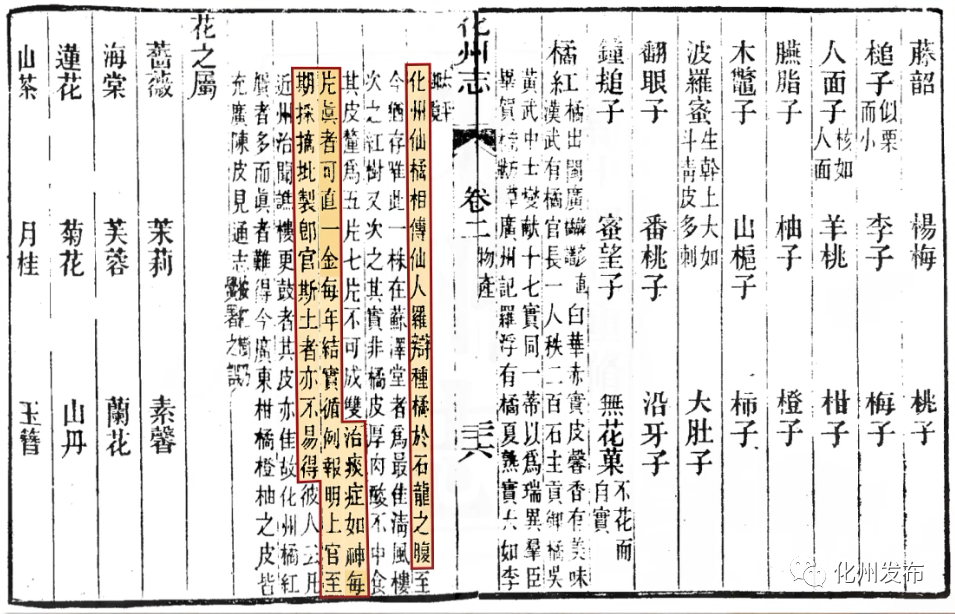 藤韶 楊梅 桃子
槌子 似栗而小 李子 梅子
人面子 核如人面 羊桃 柑子
臙脂子 柚子 橙子
木鼈子 山梔子 柿子
波羅蜜 生幹上大如斗青皮多刺 大肚子
翻眼子 番桃子 沿牙子
鐘搥子 蜜望子 無花菓 不花而自實
橘紅 橘出閩廣 白華赤實皮馨香有美味
漢武有橘官長一人秩二百石主貢御橘吳
黃武中士燮献十七實同一蒂以爲瑞異羣臣
畢賀 廣州記羅浮有橘夏熟實大如李
化州志 卷二 物產 三六
化州仙橘相傳仙人羅辯種橘於石龍之腹至
今猶存惟此一株在蘇澤堂者爲最佳淸風樓
次之紅樹又次之其實非橘皮厚肉酸不中食
其皮釐爲五片七片不可成雙治痰症如神每
片眞者可直一金每年結實循例報明上官至
期採摘批製卽官斯土者亦不易得彼人云凡
近州治聞譙樓更鼓者其皮亦佳故化州橘紅
贗者多而眞者難得今廣東柑橘橙柚之皮皆
充廣陳皮見通志 之說
花之屬
薔薇 茉莉 素馨
海棠 芙蓉 蘭花
蓮花 菊花 山丹
山茶 月桂 玉簪
化州发布